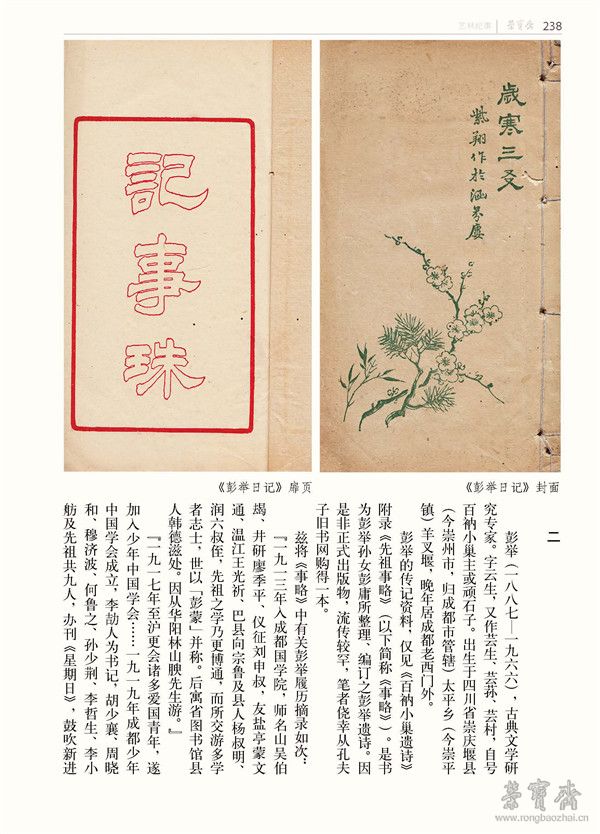 艺林纪事 | 荣宝斋 238
歲寒三爻
紫翔作於涵芬廔
記事珠
《彭举日记》封面
《彭举日记》扉页
二
彭举(一八八七—一九六六),古典文学研
究专家。字云生,又作芸生、芸荪、芸村,自号
百衲小巢主或顽石子。出生于四川省崇庆堰县
(今崇州市,归成都市管辖)太平乡(今崇平
镇)羊叉堰,晚年居成都老西门外。
彭举的传记资料,仅见《百衲小巢遗诗》
附录《先祖事略》(以下简称《事略》)。是书
为彭举孙女彭庸所整理、编订之彭举遗诗。因
是非正式出版物,流传较罕,笔者侥幸从孔夫
子旧书网购得一本。
兹将《事略》中有关彭举履历摘录如次:
『一九一三年入成都国学院,师名山吴伯
朅、井研廖季平、仪征刘申叔,友盐亭蒙文
通、温江王光祈、巴县向宗鲁及县人杨叔明、
润六叔侄,先祖之学乃更博通,而所交游多学
者志士,世以「彭蒙」并称。后寓省图书馆县
人韩德滋处。因从华阳林山腴先生游。』
『一九一七年至沪更会诸多爱国青年,遂
加入少年中国学会……一九一九年成都少年
中国学会成立,李劼人为书记,胡少襄、周晓
和、穆济波、何鲁之、孙少荆、李哲生、李小
舫及先祖共九人,办刊《星期日》,鼓吹新进
荣宝斋
www.rongbaozhai.cn